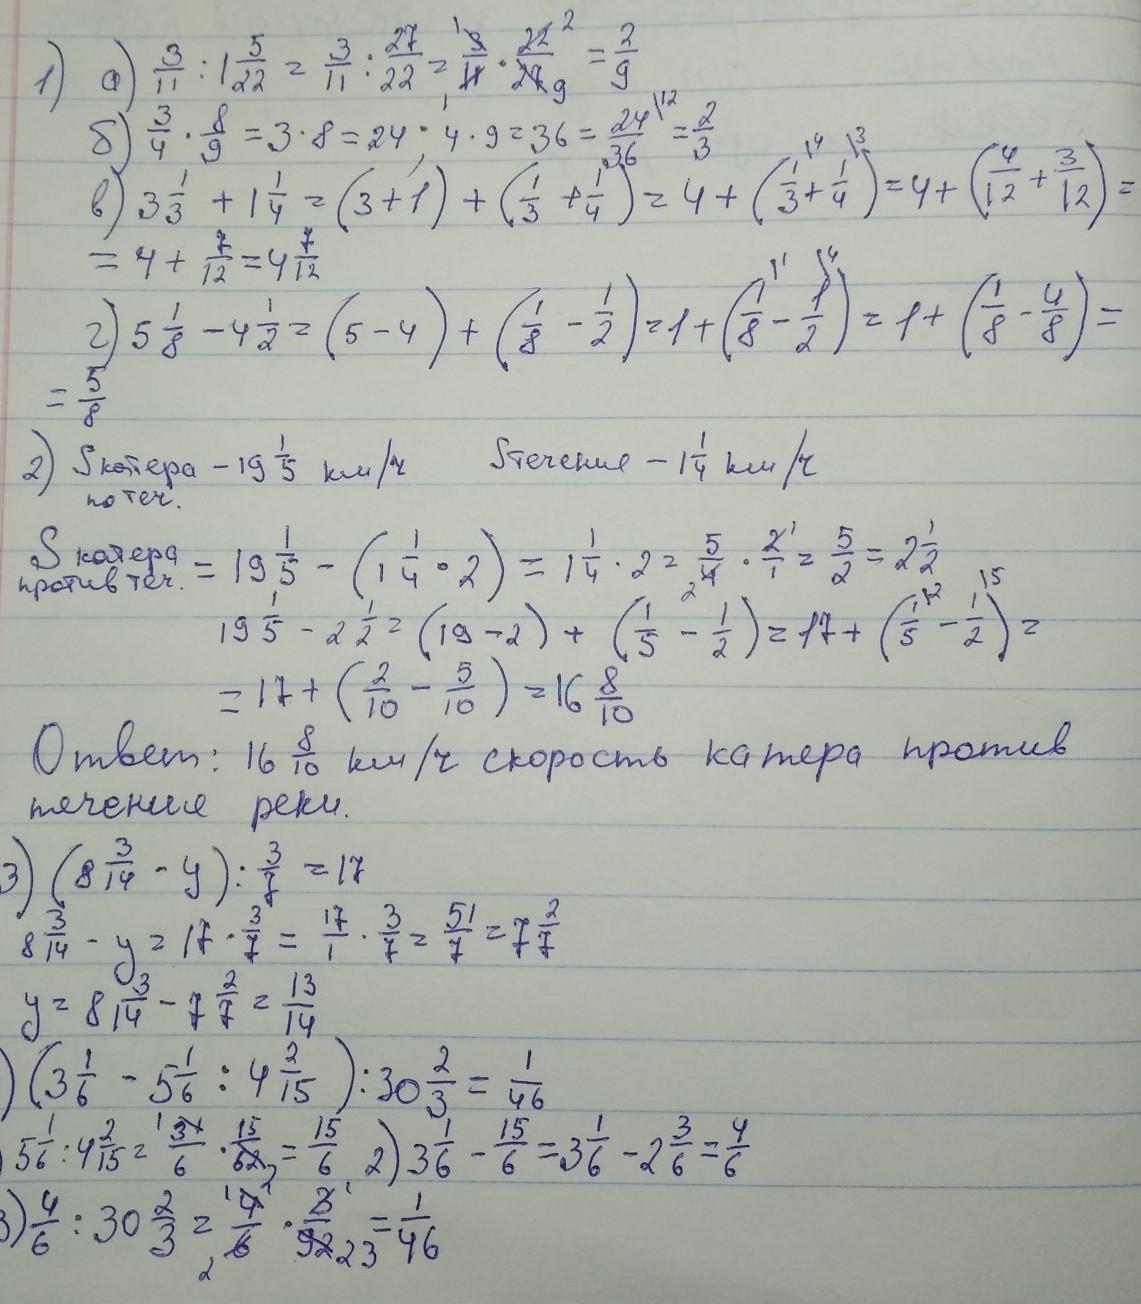 1) а) 3/11 : 1 5/22 = 3/11 : 27/22 = 3/11 · 22/27 = 2/9
б) 3/4 · 8/9 = 3 · 8 = 24 ; 4 · 9 = 36 = 24/36 = 2/3
в) 3 1/3 + 1 1/4 = (3 + 1) + (1/3 + 1/4) = 4 + (1/3 + 1/4) = 4 + (4/12 + 3/12) =
= 4 + 7/12 = 4 7/12
г) 5 1/8 - 4 1/2 = (5 - 4) + (1/8 - 1/2) = 1 + (1/8 - 1/2) = 1 + (1/8 - 4/8) =
= 5/8
2) S катера по теч. - 19 1/5 км/ч S течение - 1 1/4 км/ч
S катера против теч. = 19 1/5 - (1 1/4 · 2) = 1 1/4 · 2 = 5/4 · 2/1 = 5/2 = 2 1/2
19 1/5 - 2 1/2 = (19 - 2) + (1/5 - 1/2) = 17 + (1/5 - 1/2) =
= 17 + (2/10 - 5/10) = 16 8/10
Ответ: 16 8/10 км/ч скорость катера против
течения реки.
3) (8 3/14 - y) : 3/7 = 17
8 3/14 - y = 17 · 3/7 = 17/1 · 3/7 = 51/7 = 7 2/7
y = 8 3/14 - 7 2/7 = 13/14
) (3 1/6 - 5 1/6 : 4 2/15) : 30 2/3 = 1/46
) 5 1/6 : 4 2/15 = 31/6 · 15/62 = 15/6 2) 3 1/6 - 15/6 = 3 1/6 - 2 3/6 = 4/6
3) 4/6 : 30 2/3 = 4/6 · 3/92 = 1/46